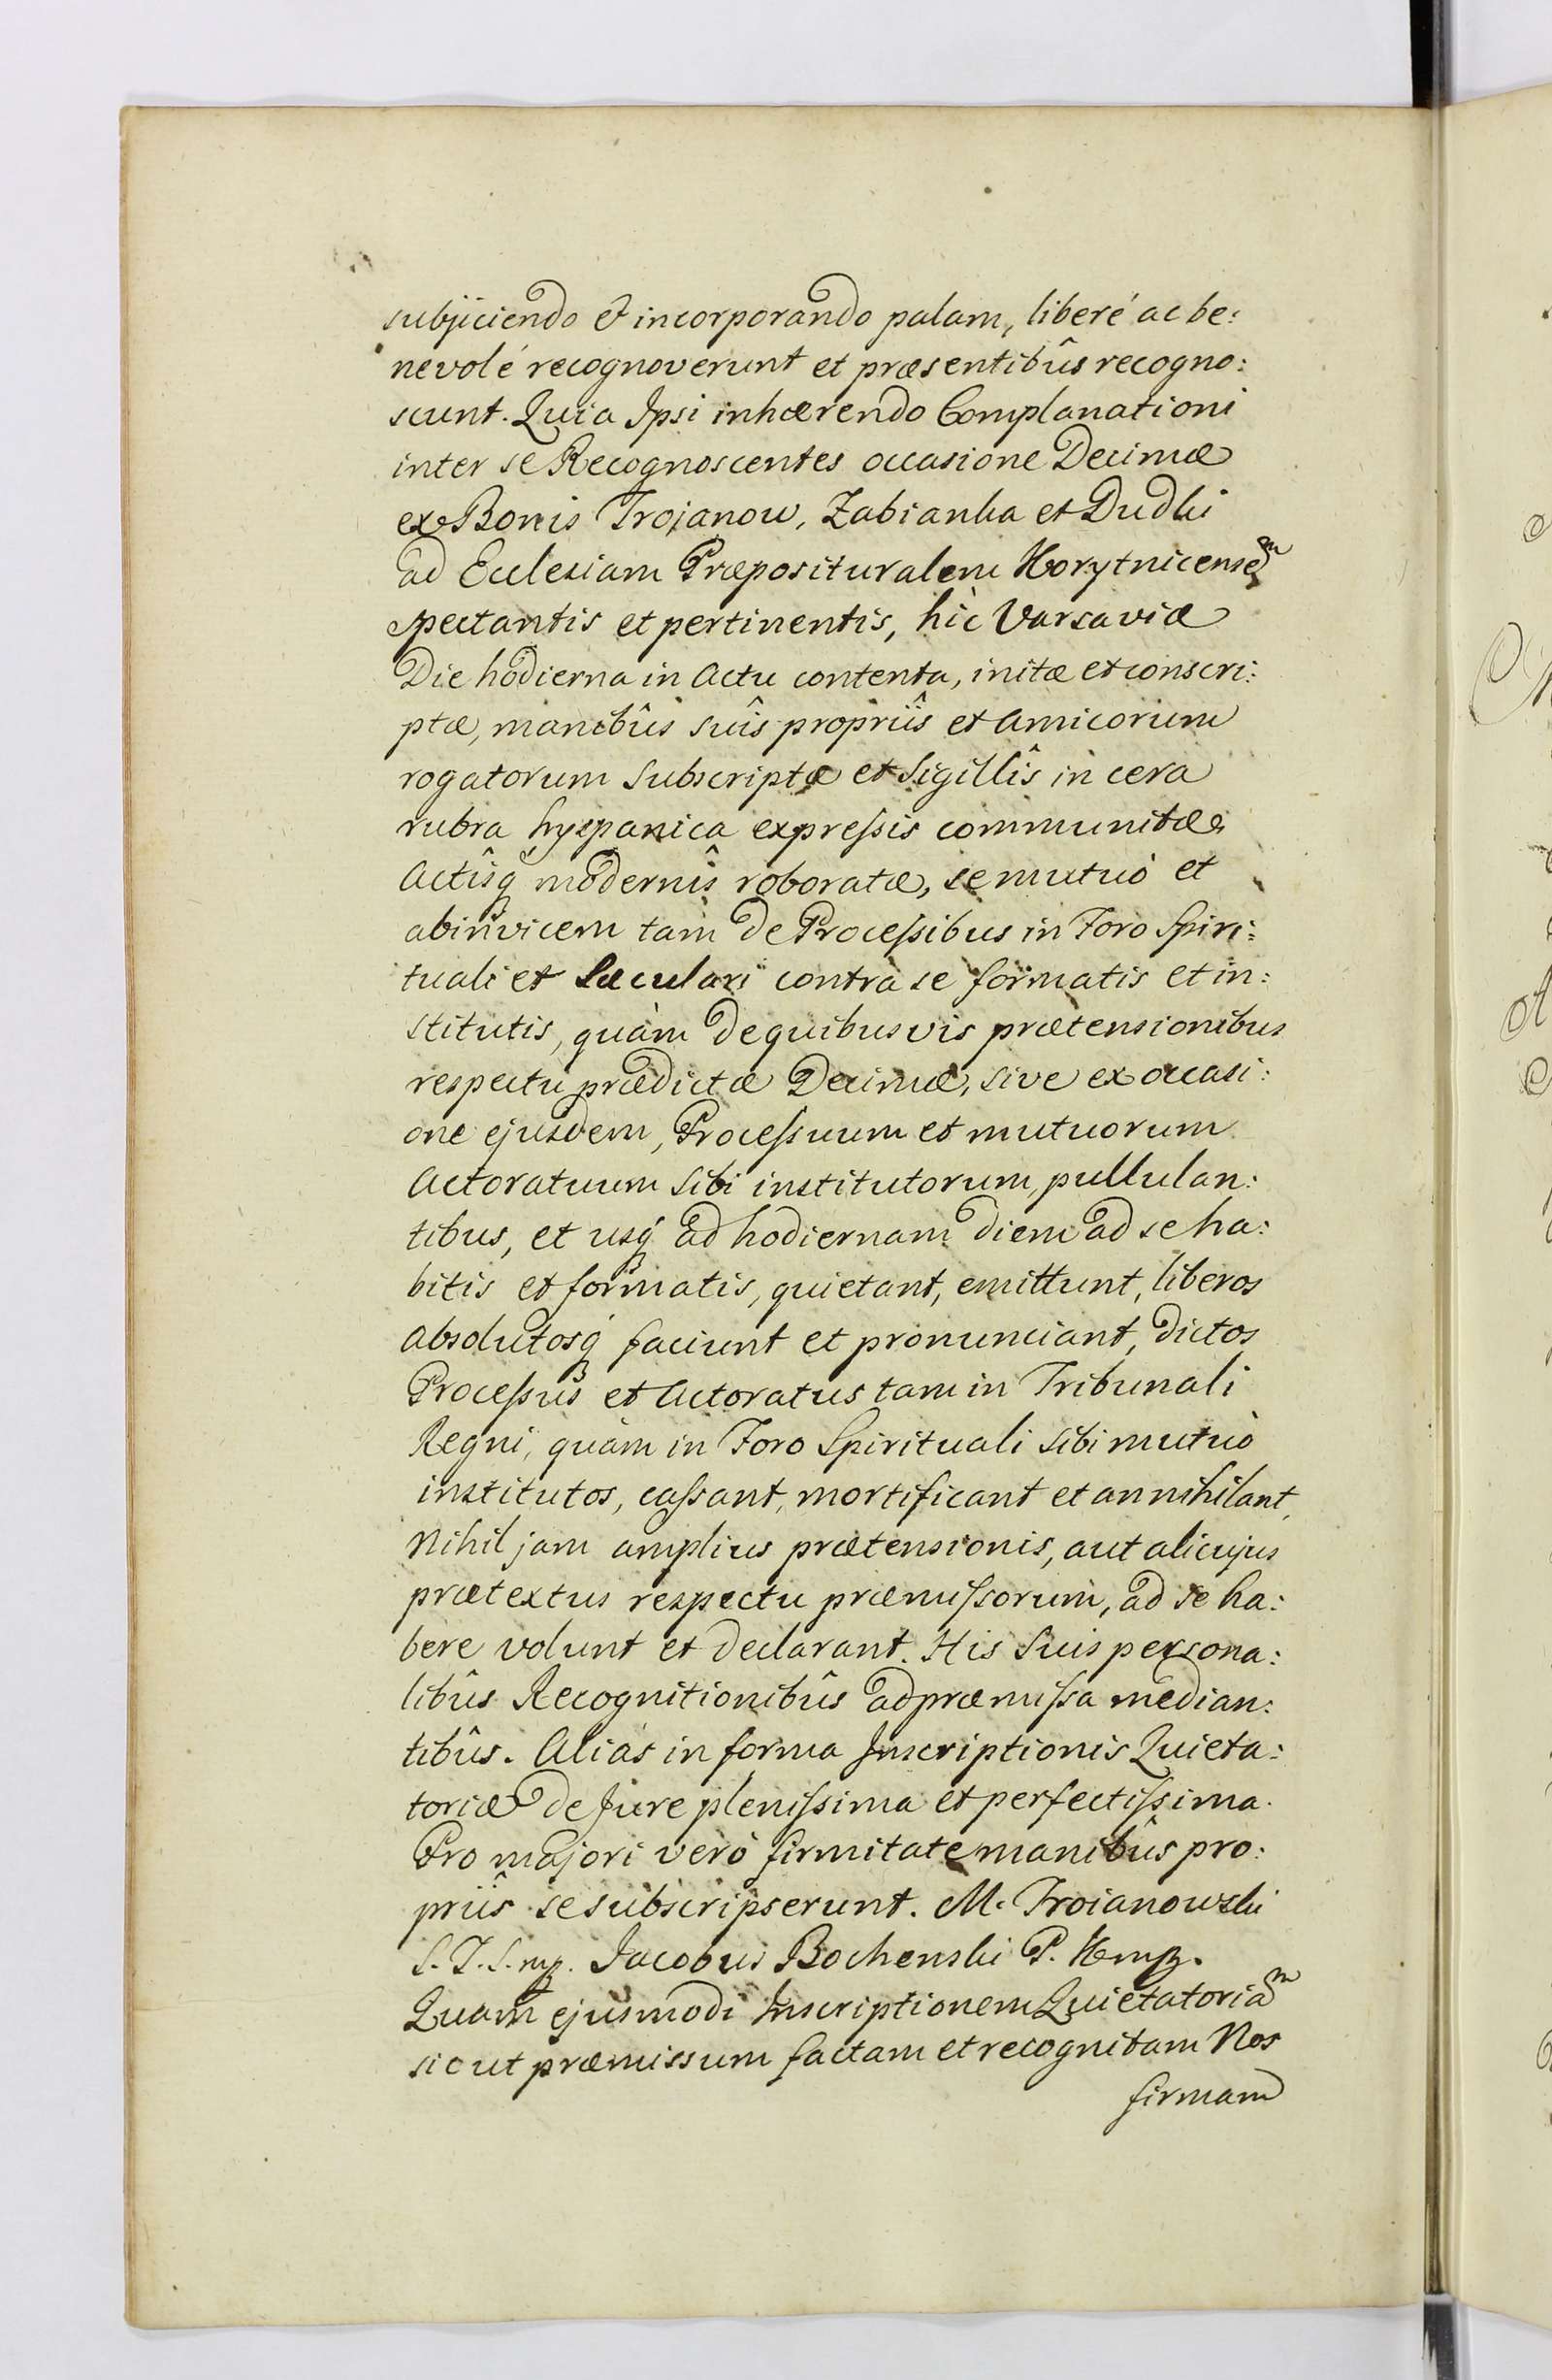 subjiciendo & incorporando palam, liberé ac be:
nevolé recognoverunt et præsentibûs recogno:
scunt. Quia Ipsi inhærendo Complanationi
inter se Recognoscentes occasione Decimæ
ex Bonis Trojanow, Zabianka et Dudki
ad Ecclesiam Præposituralem Korytnicensem
spectantis et pertinentis, hìc Varsaviæ
Die hodierna in Actu contenta, initæ et conscri:
ptæ, manibûs suîs propriîs et Amicorum
rogatorum subscriptæ et Sigillîs in cera
rubra hyspanica expressis communitæ
Actîsq modernîs roboratæ, se mutuò et
abinvicem tàm de Processibus in Foro Spiri:
tuali et Sæculari contra se formatis et in:
stitutis, quàm de quibusvis prætensionibus
respectu prædictæ Decimæ, sive ex occasi:
one ejusdem, Processuum et mutuorum
Actoratuum sibi institutorum, pullulan:
tibus, et usq ad hodiernam diem ad se ha:
bitis et formatis, quietant, emittunt, liberos
absolutosq faciunt et pronunciant, dictos
Processus et Actoratus tam in Tribunali
Regni, quàm in Foro Spirituali sibi mutuò
institutos, cassant, mortificant et annihilant,
Nihil jam amplius prætensionis, aut alicujus
prætextus respectu præmissorum, ad se ha:
bere volunt et declarant. His suis persona:
libûs Recognitionibûs ad præmissa median:
tibûs. Aliàs in forma Inscriptionis Quieta:
toriæ de Jure plenissima et perfectissima.
Pro majori verò firmitate manibûs pro:
priîs se subscripserunt. M. Troianowski
S. T. S. mp. Jacobus Bochenski P. K mp.
Quam ejusmodi Inscriptionem Quietatoriam
sic ut præmissum factam et recognitam Nos
firmam